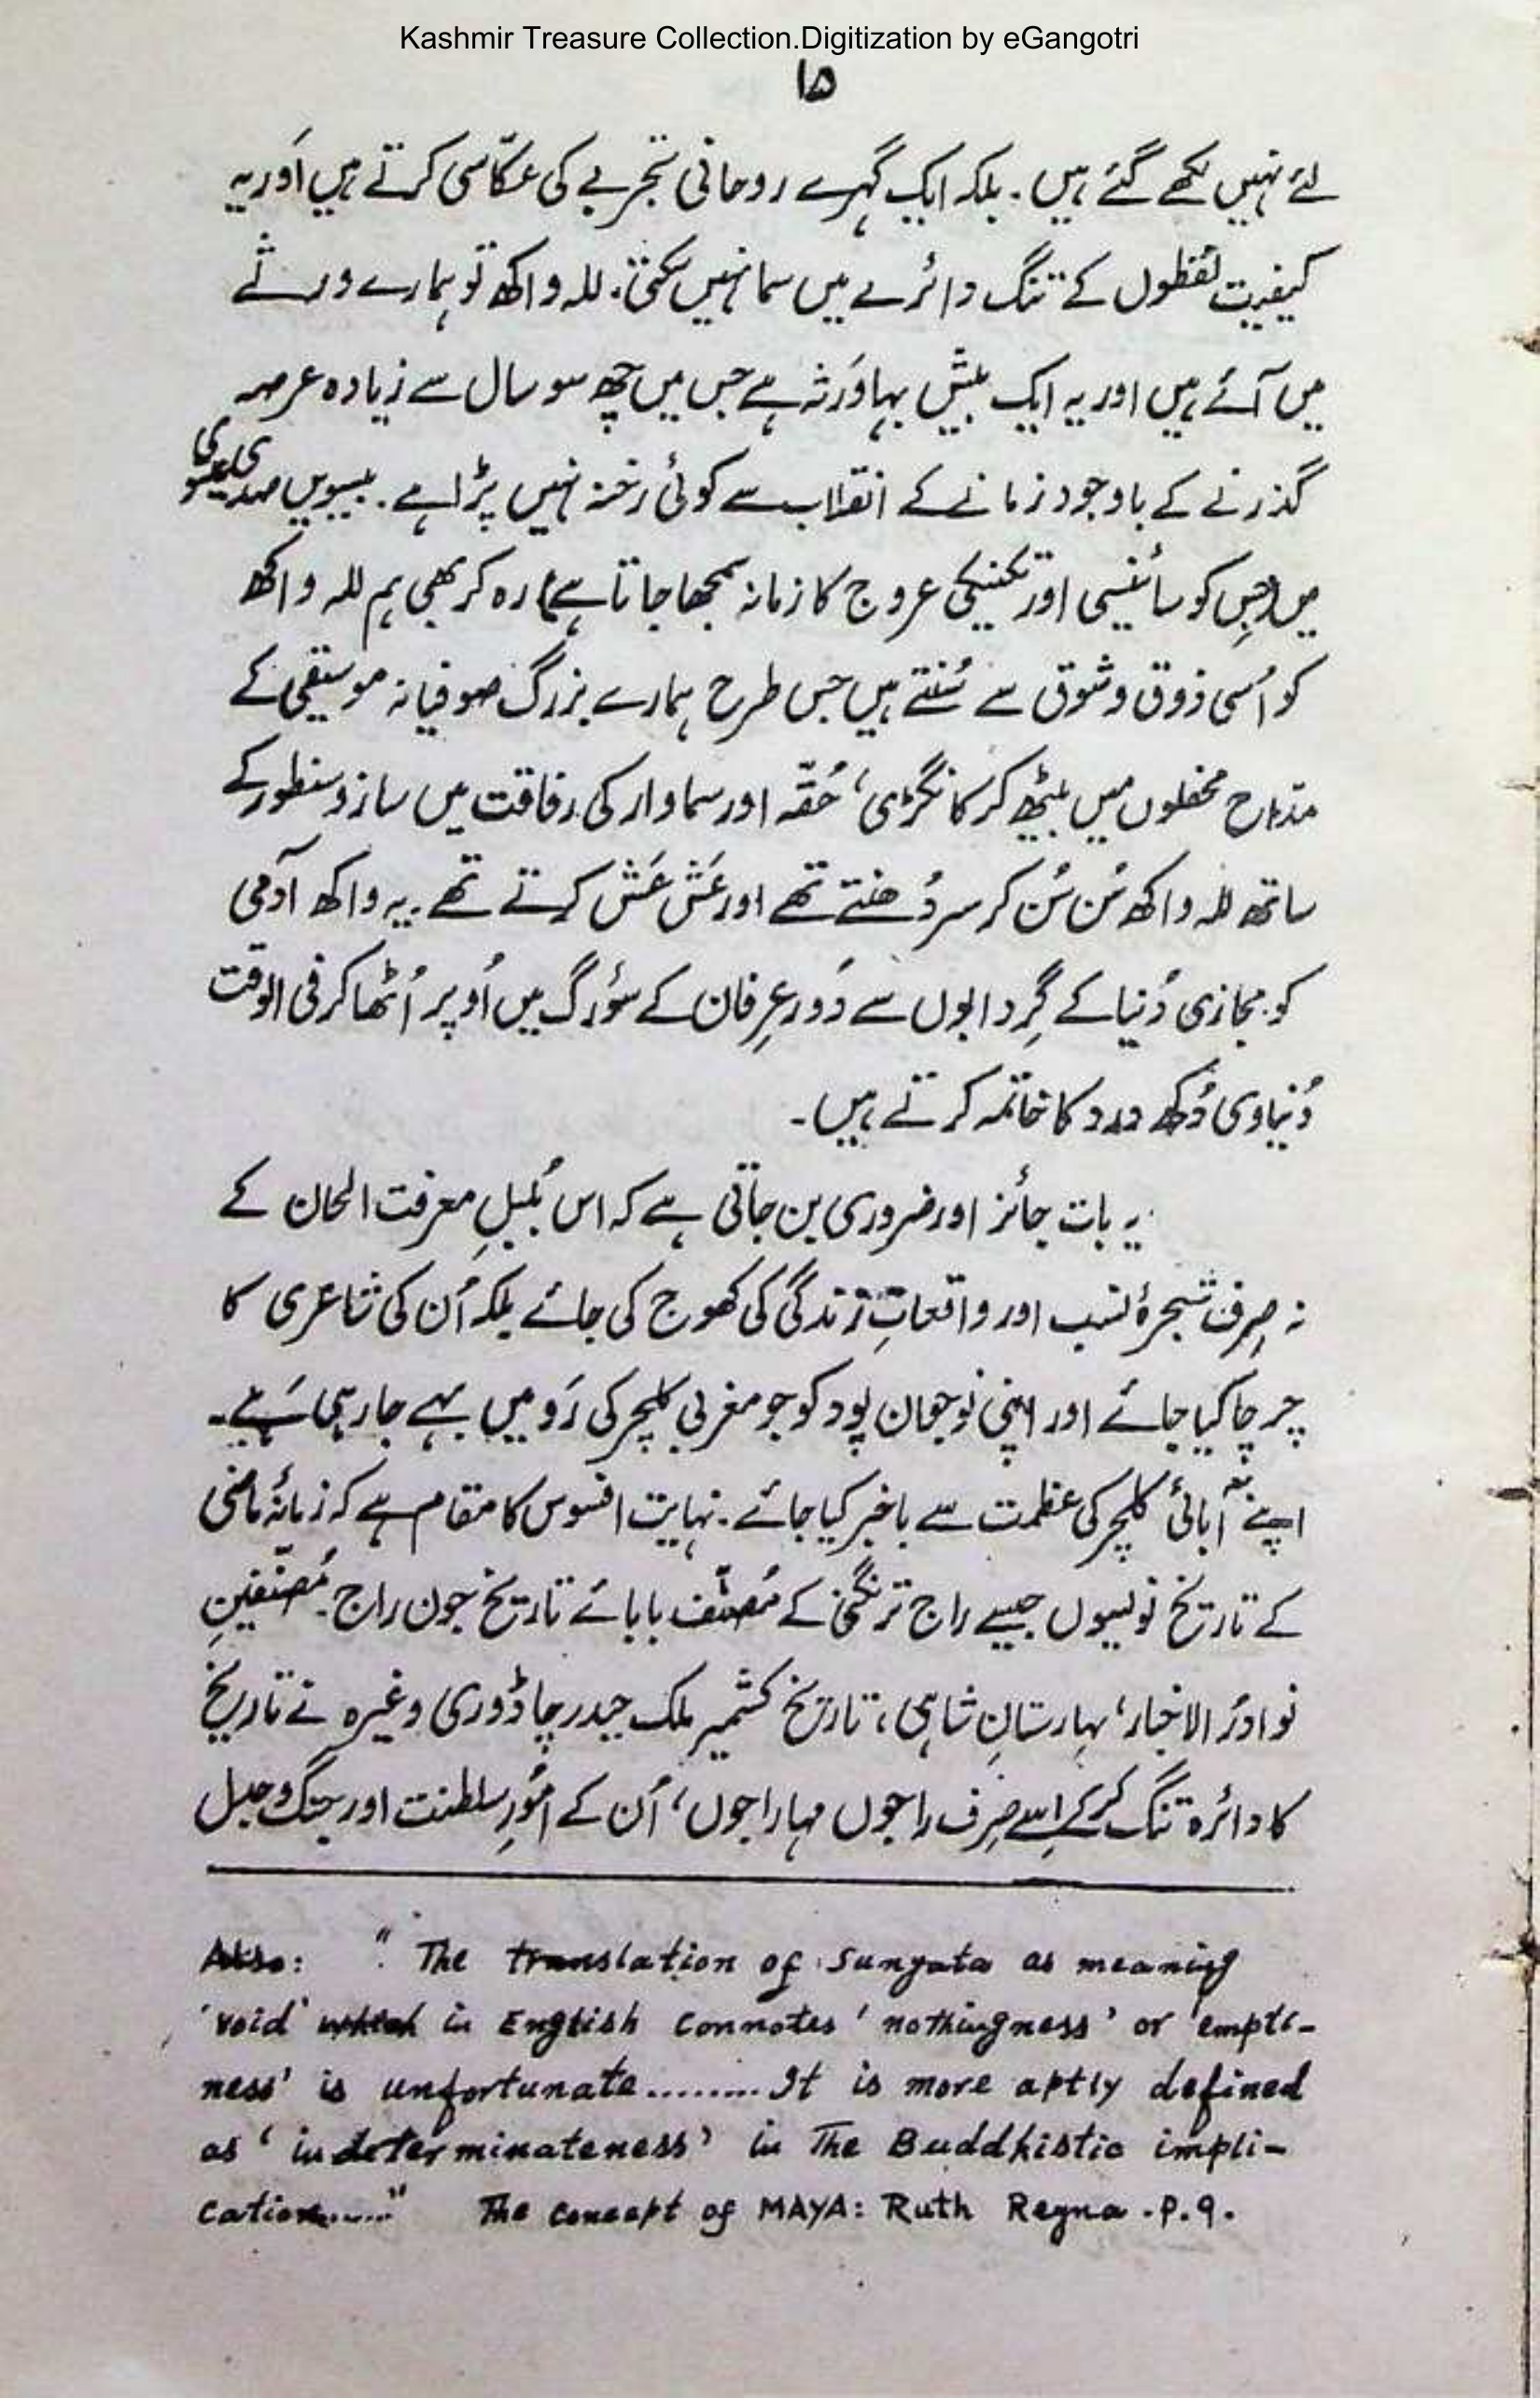 Kashmir Treasure Collection.Digitization by eGangotri
۱۵
لئے نہیں لکھے گئے ہیں۔ بلکہ ایک گہرے روحانی تجربے کی عکّاسی کرتے ہیں اَور یہ
کیفیت لفظوں کے تنگ دائرے میں سما نہیں سکتی۔ للہ واکھ تو ہمارے ورثے
میں آئے ہیں اور یہ ایک بیش بہا وَرثہ ہے جس میں چھ سو سال سے زیادہ عرصہ
گذرنے کے باوجود زمانے کے انقلاب سے کوئی رخنہ نہیں پڑا ہے۔ بیسویں صدی عیسوی
میں (جِس کو سائنسی اور تکنیکی عروج کا زمانہ سمجھا جاتا ہے) رہ کر بھی ہم للہ واکھ
کو اُسی ذوق و شوق سے سُنتے ہیں جس طرح ہمارے بزرگ صوفیانہ موسیقی کے
مدّاح محفلوں میں بیٹھ کر کانگڑی، حُقّہ اور سماوار کی رفاقت میں ساز و سنطور کے
ساتھ للہ واکھ سُن سُن کر سر دُھنتے تھے اور عَش عَش کرتے تھے۔ یہ واکھ آدمی
کو مجازی دُنیا کے گِردابوں سے دُور عِرفان کے سؤرگ میں اُوپر اُٹھا کر فی الوقت
دُنیاوی دُکھ درد کا خاتمہ کرتے ہیں۔
یہ بات جائز اور ضروری بن جاتی ہے کہ اس بُلبلِ معرفت الحان کے
نہ صِرف شجرۂ نسب اور واقعاتِ زندگی کی کھوج کی جائے بلکہ اُن کی شاعری کا
چرچا کیا جائے اور اپنی نوجوان پود کو جو مغربی کلچر کی رَو میں بہے جا رہی ہَے۔
اپنے آبائی کلچر کی عظمت سے باخبر کیا جائے۔ نہایت افسوس کا مقام ہے کہ زمانۂ ماضی
کے تاریخ نویسوں جیسے راج ترنگنی کے مُصنّف بابائے تاریخ جون راج۔ مُصنّفینِ
نوادرُ الاخبار، بہارستانِ شاہی، تاریخ کشمیر ملک حیدر چاڈوری وغیرہ نے تاریخ
کا دائرہ تنگ کر کے اِسے صِرف راجوں مہاراجوں، اُن کے امُورِ سلطنت اور جنگ و جدل
Also: " The translation of Sunyata as meaning
'void' which in English connotes 'nothingness' or 'empti-
ness' is unfortunate.........It is more aptly defined
as 'indeterminateness' in The Buddhistic impli-
cation......" The concept of MAYA: Ruth Reyna .P.9.